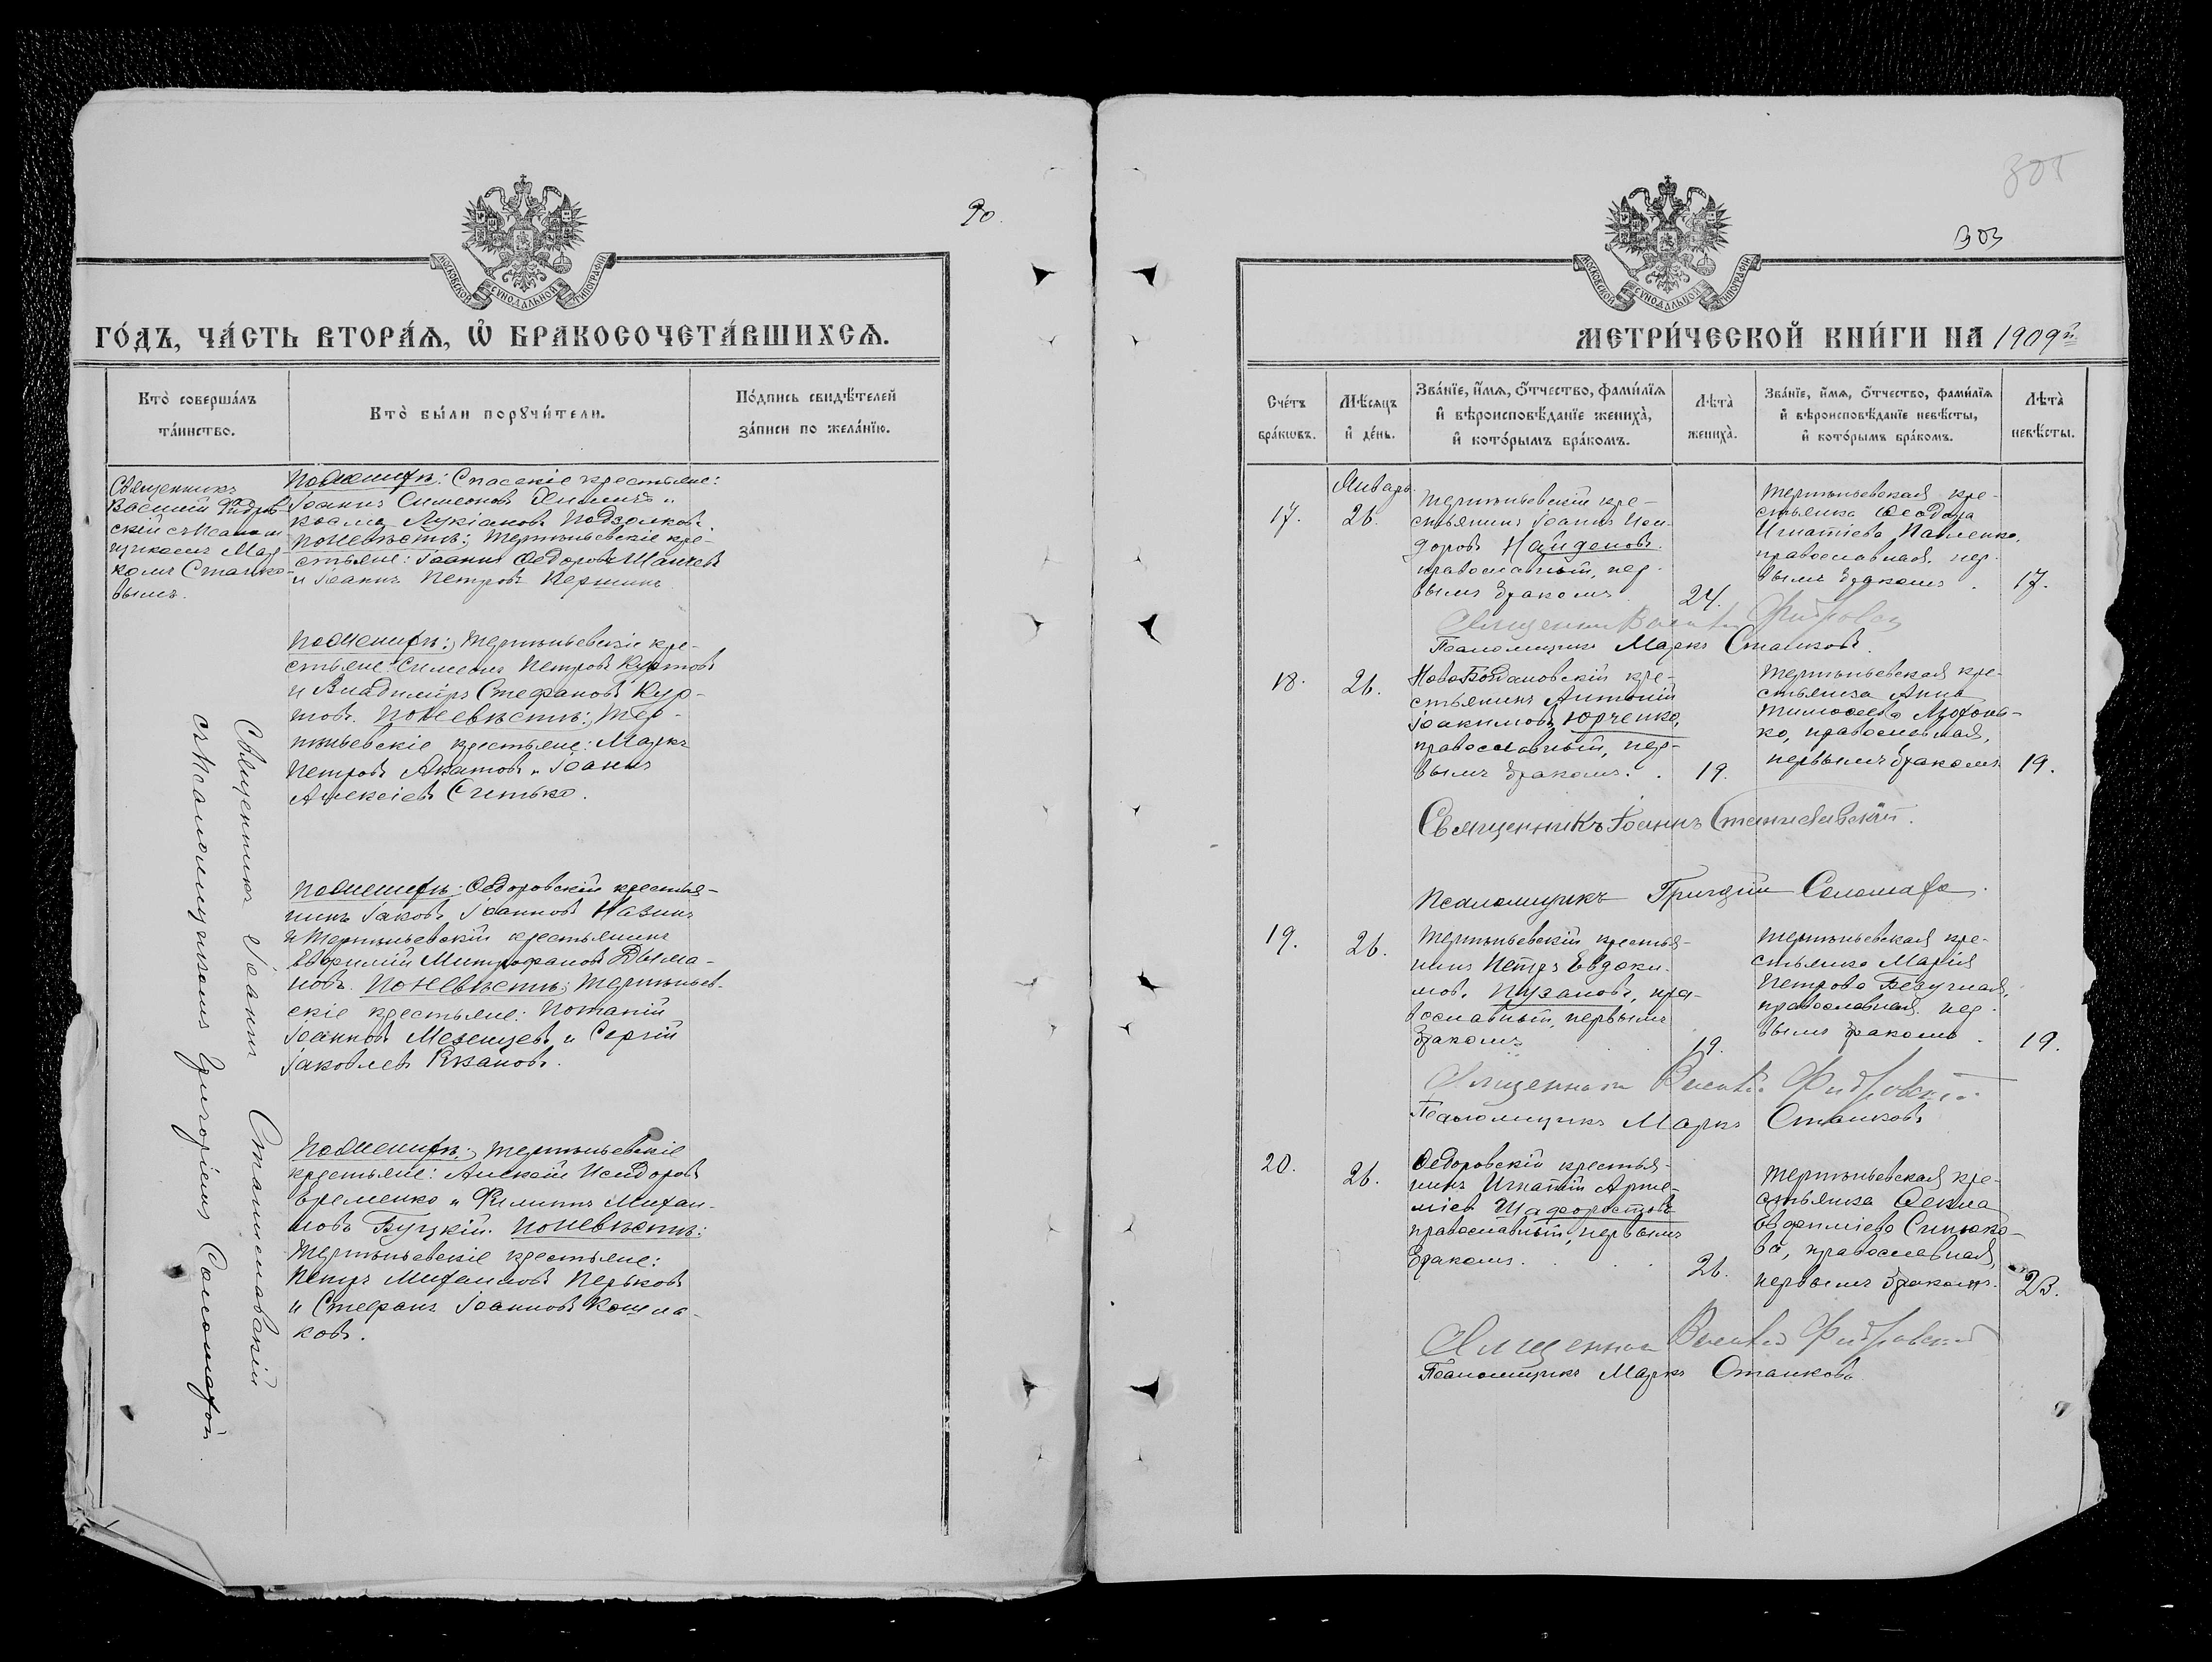 90.
МОСКОВСКОЙ СѴНОДАЛЬНОЙ ТИПОГРАФІИ
ГО́ДЪ, ЧА́СТЬ ВТОРА́Ѧ, Ѽ БРАКОСОЧЕТА́ВШИХСѦ.
Кто̀ соверша́лъ
та́инство.
Кто̀ бы́ли порꙋчи́тели.
По́дпись свидѣ́телей
за́писи по жела́нїю.
Священникъ
Василій Фидров-
скій съ псалом
щикомъ Мар-
комъ Станко-
вымъ.
По женихѣ: Спаскіе крестьяне:
Іоаннъ Симеоновъ и
Косма Лукіановъ Подзолковъ.
По невѣстѣ: Терпѣньевскіе кре-
стьяне: Іоаннъ Ѳедоровъ
и Іоаннъ Петровъ Першинъ
По женихѣ: Терпѣньевскіе кре-
стьяне: Симеонъ Петровъ Куртовъ
и Владиміръ Стефановъ Кур-
товъ. По невѣстѣ: Тер-
пѣньевскіе крестьяне: Маркъ
Петровъ Акатовъ и Іоаннъ
Алексіевъ Ситько.
По женихѣ: Ѳедоровскій крестья-
нинъ Іаковъ Іоанновъ Назинъ
и Терпѣньевскій крестьянинъ
Евфимій Митрофановъ Дыма-
новъ. По невѣстѣ: Терпѣньев-
скіе крестьяне: Потапій
Іоанновъ Мезенцевъ и Сергій
Іаковлевъ Рязановъ.
По женихѣ: Терпѣньевскіе
крестьяне: Алексій Исидоровъ
Еременко и Филиппъ Михаи-
ловъ Буцкій. По невѣстѣ:
Терпѣньевскіе крестьяне:
Петръ Михаиловъ Перьковъ
и Стефанъ Іоанновъ Кошла-
ковъ.
Священникъ Іоаннъ Станиславскій
съ псаломщикомъ Григоріемъ Соломахой.
305
303
МОСКОВСКОЙ СѴНОДАЛЬНОЙ ТИПОГРАФІИ
МЕТРИ́ЧЕСКОЙ КНИ́ГИ НА 1909й
Сче́тъ
бра́кѡвъ.
Мѣ́сѧцъ
и҆ де́нь.
Зва́нїе, и҆́мѧ, ѻ҆́тчество, фами́лїѧ
и҆ вѣроисповѣ́данїе жениха̀,
и҆ кото́рымъ бра́комъ.
Лѣ́та̀
жениха̀.
Зва́нїе, и҆́мѧ, ѻ҆́тчество, фами́лїѧ
и҆ вѣроисповѣ́данїе невѣ́сты,
и҆ кото́рымъ бра́комъ.
Лѣ́та̀
невѣ́сты.
Январь.
17.
26.
Терпѣньевскій кре-
стьянинъ Іоаннъ Иси-
доровъ Найденовъ.
православный, пер-
вымъ бракомъ.
24.
Терпѣньевская кре-
стьянка Ѳеодора
Игнатіева Павленко,
православная, пер-
вымъ бракомъ.
17.
Священникъ Василій Фидровскій
Псаломщикъ Маркъ Станковъ.
18.
26.
Ново Богдановскій кре-
стьянинъ Антоній
Іоакимовъ Юрченко,
православный, пер-
вымъ бракомъ.
19.
Терпѣньевская кре-
стьянка Анна
Тимоѳеева
православная,
первымъ бракомъ
19.
Священникъ Іоаннъ Станиславскій.
Псаломщикъ Григорій Соломаха.
19.
26.
Терпѣньевскій крестья-
нинъ Петръ Евдоки-
мовъ Пузановъ, пра-
вославный, первымъ
бракомъ
19.
Терпѣньевская кре-
стьянка Марія
Петрова Безучная,
православная, пер-
вымъ бракомъ.
19.
Священникъ Василій Фидровскій
Псаломщикъ Маркъ Станковъ
20.
26.
Ѳедоровскій крестья-
нинъ Игнатій Арте-
міевъ Шафоростовъ
православный, первымъ
бракомъ.
26.
Терпѣньевская кре-
стьянка Ѳекла
Евфиміева Синюко-
ва, православная,
первымъ бракомъ.
23.
Священникъ Василій Фидровскій
Псаломщикъ Маркъ Станковъ